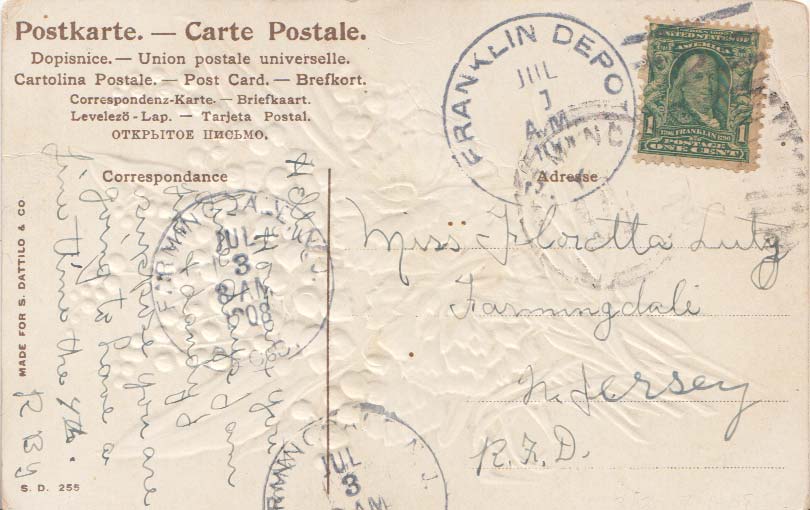 Postkarte. — Carte Postale.
Dopisnice. — Union postale universelle.
Cartolina Postale. — Post Card. — Brefkort.
Correspondenz-Karte. — Briefkaart.
Levelező-Lap. — Tarjeta Postal.
ОТКРЫТОЕ ПИСЬМО.
Correspondance
Adresse
FRANKLIN DEPOT
JUL
1
A.M.
UNITED STATES OF AMERICA
1 FRANKLIN 1
POSTAGE
ONE CENT
Miss Floretta Lutz
Farmingdale
N. Jersey
R.F.D.
FARMINGDALE, N.J.
JUL
3
8 AM
1908
Hello
how are you
I am
you are
going to have a
fine time the 4th.
FARMINGDALE, N.J.
JUL
3
AM
MADE FOR S. DATTILO & CO
S. D. 255